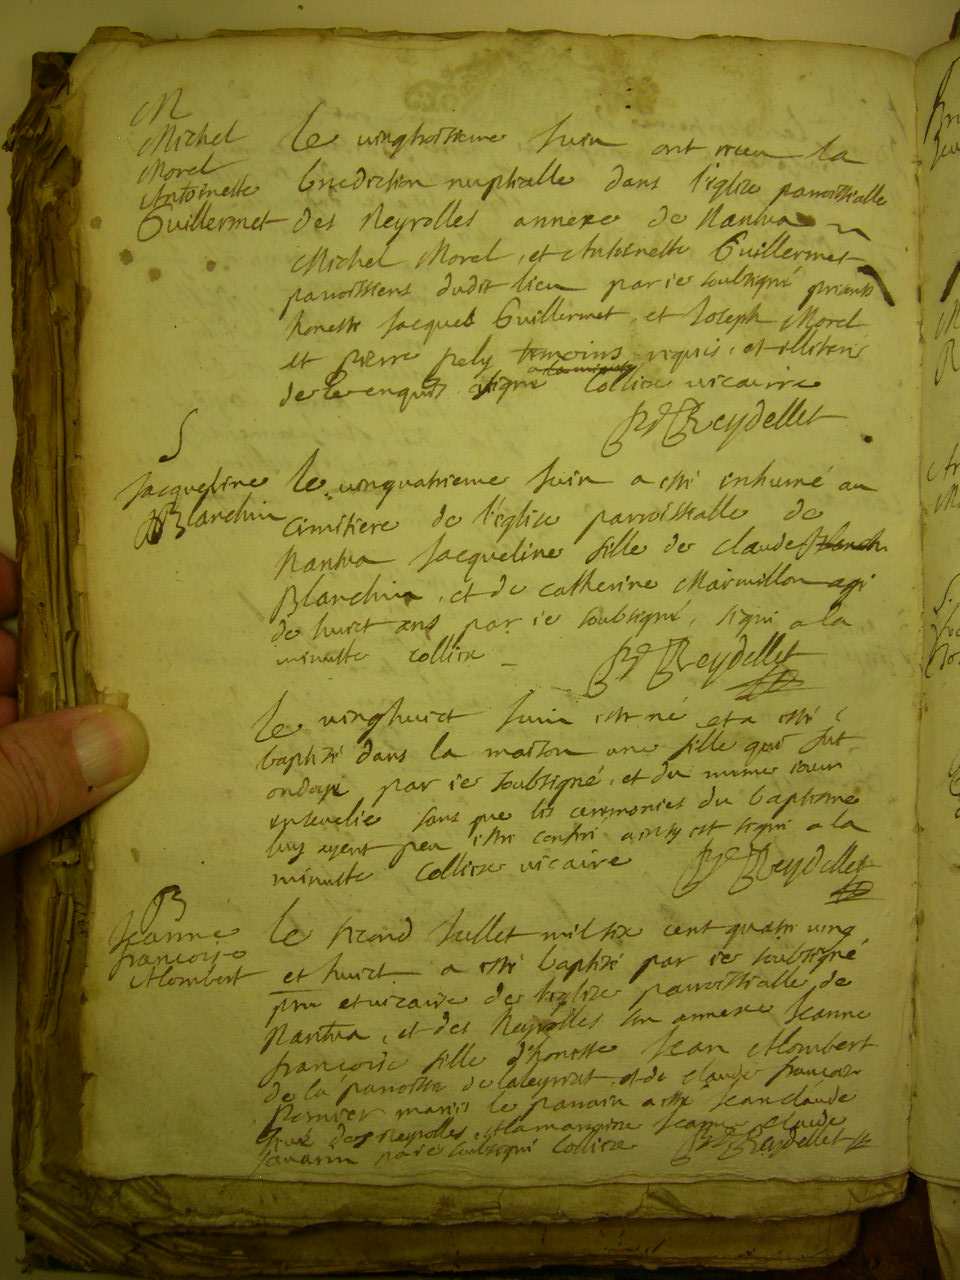 M
Michel
Morel
Antoinette
Guillermet
le vingtroisieme Juin ont receu la
benediction nuptialle dans l'eglize parroissialle
des Neyrolles annexe de Nantua
Michel Morel, et Antoinette Guillermet
parroissiens dudit lieu par ie soubsigné presents
honeste Jacques Guillermet, et Joseph Morel
et pierre pely temoins requis, et illiteres
de ce enquis signé Colliex vicaire
Reydellet
S
Jacqueline
Blanchin
le vinquatrieme Juin a esté enhumé au
cimitiere de l'eglize parroissialle de
Nantua Jacqueline fille de claude
Blanchin, et de catherine Marmillon agé
de huict ans par ie soubsigné, signé a la
minutte colliex
Reydellet
le vinghuict Juin est né et a esté
baptizé dans la maison une fille qui fut
ondoye par ie soubsigné, et du mesme iour
ensevelie sans que les ceremonies du baptesme
luy ayent peu estre conferé ainsy est signé a la
minutte Colliex vicaire Reydellet
B
Jeanne
françoise
Alombert
le second Jullet mil six cent quatre ving
et huict a esté baptizé par ie soubsigné
pre et vicaire de l'eglize parroissialle de
Nantua, et des Neyrolles son annexe Jeanne
françoise fille d'honeste Jean Alombert
de la parroisse de laleyriat et de claude françoise
mariés le parrain a esté Jean claude
des Neyrolles, et la marraine Jeanne claude
par ie soubsigné Colliex Reydellet